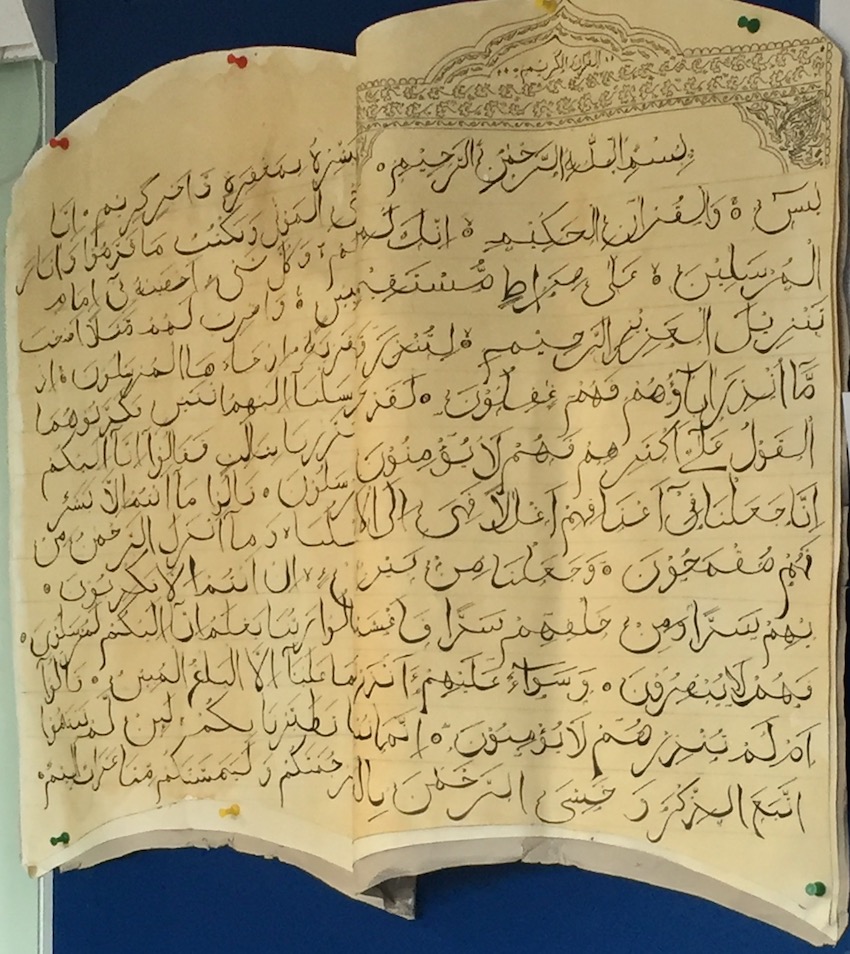 القرآن الكريم
بِسْمِ اللهِ الرَّحْمٰنِ الرَّحِيْمِ ۰
يسٓ ۰ وَالْقُرْاٰنِ الْحَكِيْمِ ۰ اِنَّكَ لَمِنَ
الْمُرْسَلِيْنَ ۰ عَلٰى صِرَاطٍ مُّسْتَقِيْمٍ
تَنْزِيْلَ الْعَزِيْزِ الرَّحِيْمِ ۰ لِتُنْذِرَ
مَّا اُنْذِرَ اٰبَاؤُهُمْ فَهُمْ غٰفِلُوْنَ ۰ لَقَدْ
الْقَوْلُ عَلٰى اَكْثَرِهِمْ فَهُمْ لَا يُؤْمِنُوْنَ
اِنَّا جَعَلْنَا فِىْ اَعْنَاقِهِمْ اَغْلٰلًا فَهِىَ اِلَى
فَهُمْ مُقْمَحُوْنَ ۰ وَجَعَلْنَا مِنْ بَيْنِ
يْهِمْ سَدًّا وَمِنْ خَلْفِهِمْ سَدًّا
فَهُمْ لَا يُبْصِرُوْنَ ۰ وَسَوَآءٌ عَلَيْهِمْ ءَاَنْذَرْ
اَمْ لَمْ تُنْذِرْهُمْ لَا يُؤْمِنُوْنَ ۰ اِنَّمَا
اتَّبَعَ الذِّكْرَ وَ خَشِىَ الرَّحْمٰنَ بِالْ
بشره بمغفرة واجر كريم ۰ انا
الموتى ونكتب ما قدموا واثار
هم وكل شىء احصينه فى امام
مبين ۰ واضرب لهم مثلا اصحب
القرية اذ جاءها المرسلون ۰ اذ
ارسلنا اليهم اثنين فكذبوهما
فعززنا بثالث فقالوا انا اليكم
مرسلون ۰ قالوا ما انتم الا بشر
مثلنا ۰ وما انزل الرحمن من
شىء ان انتم الا تكذبون ۰
قالوا ربنا يعلم انا اليكم لمرسلون ۰
وما علينا الا البلغ المبين ۰ قالوا
انا تطيرنا بكم لئن لم تنتهوا
لنرجمنكم و ليمسنكم منا عذاب اليم ۰